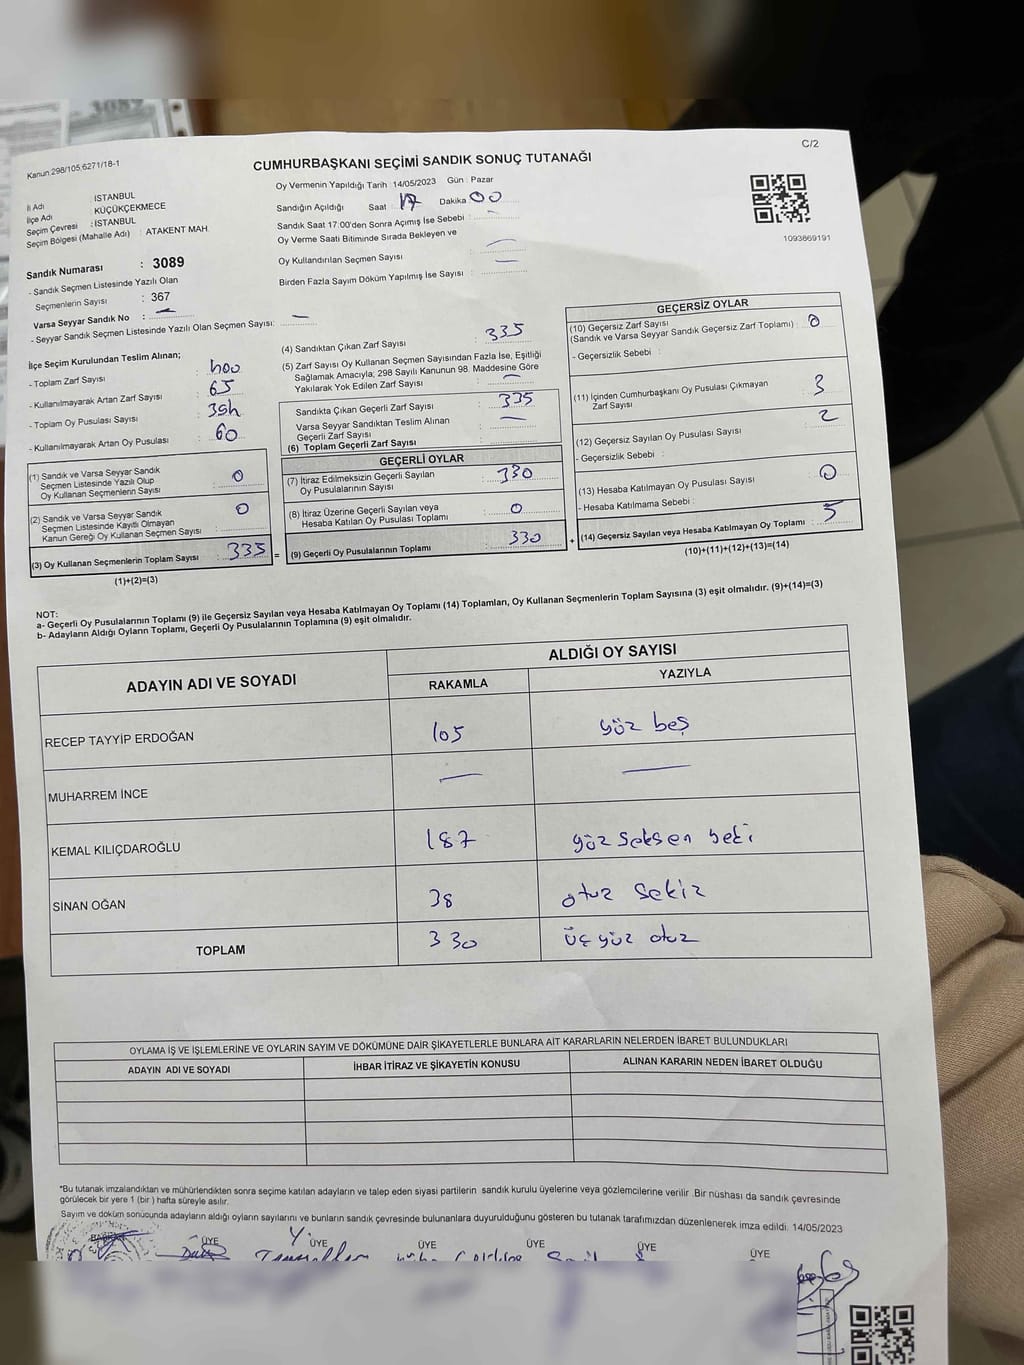 Kanun.298/105;6271/18-1
C/2
CUMHURBAŞKANI SEÇİMİ SANDIK SONUÇ TUTANAĞI
İl Adı : İSTANBUL
İlçe Adı : KÜÇÜKÇEKMECE
Seçim Çevresi : İSTANBUL
Seçim Bölgesi (Mahalle Adı) : ATAKENT MAH.
Sandık Numarası : 3089
- Sandık Seçmen Listesinde Yazılı Olan
Seçmenlerin Sayısı : 367
Varsa Seyyar Sandık No : —
- Seyyar Sandık Seçmen Listesinde Yazılı Olan Seçmen Sayısı: —
Oy Vermenin Yapıldığı Tarih : 14/05/2023 Gün : Pazar
Sandığın Açıldığı Saat 17 Dakika 00
Sandık Saat 17:00'den Sonra Açımış İse Sebebi :
Oy Verme Saati Bitiminde Sırada Bekleyen ve
Oy Kullandırılan Seçmen Sayısı : —
Birden Fazla Sayım Döküm Yapılmış İse Sayısı : —
1093869191
İlçe Seçim Kurulundan Teslim Alınan;
- Toplam Zarf Sayısı : 400
- Kullanılmayarak Artan Zarf Sayısı : 65
- Toplam Oy Pusulası Sayısı : 394
- Kullanılmayarak Artan Oy Pusulası : 60
(1) Sandık ve Varsa Seyyar Sandık
Seçmen Listesinde Yazılı Olup
Oy Kullanan Seçmenlerin Sayısı : 0
(2) Sandık ve Varsa Seyyar Sandık
Seçmen Listesinde Kayıtlı Olmayan
Kanun Gereği Oy Kullanan Seçmen Sayısı : 0
(3) Oy Kullanan Seçmenlerin Toplam Sayısı : 335 =
(1)+(2)=(3)
(4) Sandıktan Çıkan Zarf Sayısı : 335
(5) Zarf Sayısı Oy Kullanan Seçmen Sayısından Fazla İse, Eşitliği
Sağlamak Amacıyla; 298 Sayılı Kanunun 98. Maddesine Göre
Yakılarak Yok Edilen Zarf Sayısı : —
Sandıkta Çıkan Geçerli Zarf Sayısı : 335
Varsa Seyyar Sandıktan Teslim Alınan
Geçerli Zarf Sayısı : —
(6) Toplam Geçerli Zarf Sayısı :
GEÇERLİ OYLAR
(7) İtiraz Edilmeksizin Geçerli Sayılan
Oy Pusulalarının Sayısı : 330
(8) İtiraz Üzerine Geçerli Sayılan veya
Hesaba Katılan Oy Pusulası Toplamı : 0
(9) Geçerli Oy Pusulalarının Toplamı : 330 +
GEÇERSİZ OYLAR
(10) Geçersiz Zarf Sayısı
(Sandık ve Varsa Seyyar Sandık Geçersiz Zarf Toplamı) : 0
- Geçersizlik Sebebi :
(11) İçinden Cumhurbaşkanı Oy Pusulası Çıkmayan
Zarf Sayısı : 3
(12) Geçersiz Sayılan Oy Pusulası Sayısı : 2
- Geçersizlik Sebebi :
(13) Hesaba Katılmayan Oy Pusulası Sayısı : 0
- Hesaba Katılmama Sebebi :
(14) Geçersiz Sayılan veya Hesaba Katılmayan Oy Toplamı : 5
(10)+(11)+(12)+(13)=(14)
NOT:
a- Geçerli Oy Pusulalarının Toplamı (9) ile Geçersiz Sayılan veya Hesaba Katılmayan Oy Toplamı (14) Toplamları, Oy Kullanan Seçmenlerin Toplam Sayısına (3) eşit olmalıdır. (9)+(14)=(3)
b- Adayların Aldığı Oyların Toplamı, Geçerli Oy Pusulalarının Toplamına (9) eşit olmalıdır.
ADAYIN ADI VE SOYADI
ALDIĞI OY SAYISI
RAKAMLA YAZIYLA
RECEP TAYYİP ERDOĞAN 105 yüz beş
MUHARREM İNCE — —
KEMAL KILIÇDAROĞLU 187 yüz seksen yedi
SİNAN OĞAN 38 otuz sekiz
TOPLAM 330 üç yüz otuz
OYLAMA İŞ VE İŞLEMLERİNE VE OYLARIN SAYIM VE DÖKÜMÜNE DAİR ŞİKAYETLERLE BUNLARA AİT KARARLARIN NELERDEN İBARET BULUNDUKLARI
ADAYIN ADI VE SOYADI İHBAR İTİRAZ VE ŞİKAYETİN KONUSU ALINAN KARARIN NEDEN İBARET OLDUĞU
*Bu tutanak imzalandıktan ve mühürlendikten sonra seçime katılan adayların ve talep eden siyasi partilerin sandık kurulu üyelerine veya gözlemcilerine verilir .Bir nüshası da sandık çevresinde
görülecek bir yere 1 (bir ) hafta süreyle asılır.
Sayım ve döküm sonucunda adayların aldığı oyların sayılarını ve bunların sandık çevresinde bulunanlara duyurulduğunu gösteren bu tutanak tarafımızdan düzenlenerek imza edildi. 14/05/2023
BAŞKAN ÜYE ÜYE ÜYE ÜYE ÜYE ÜYE